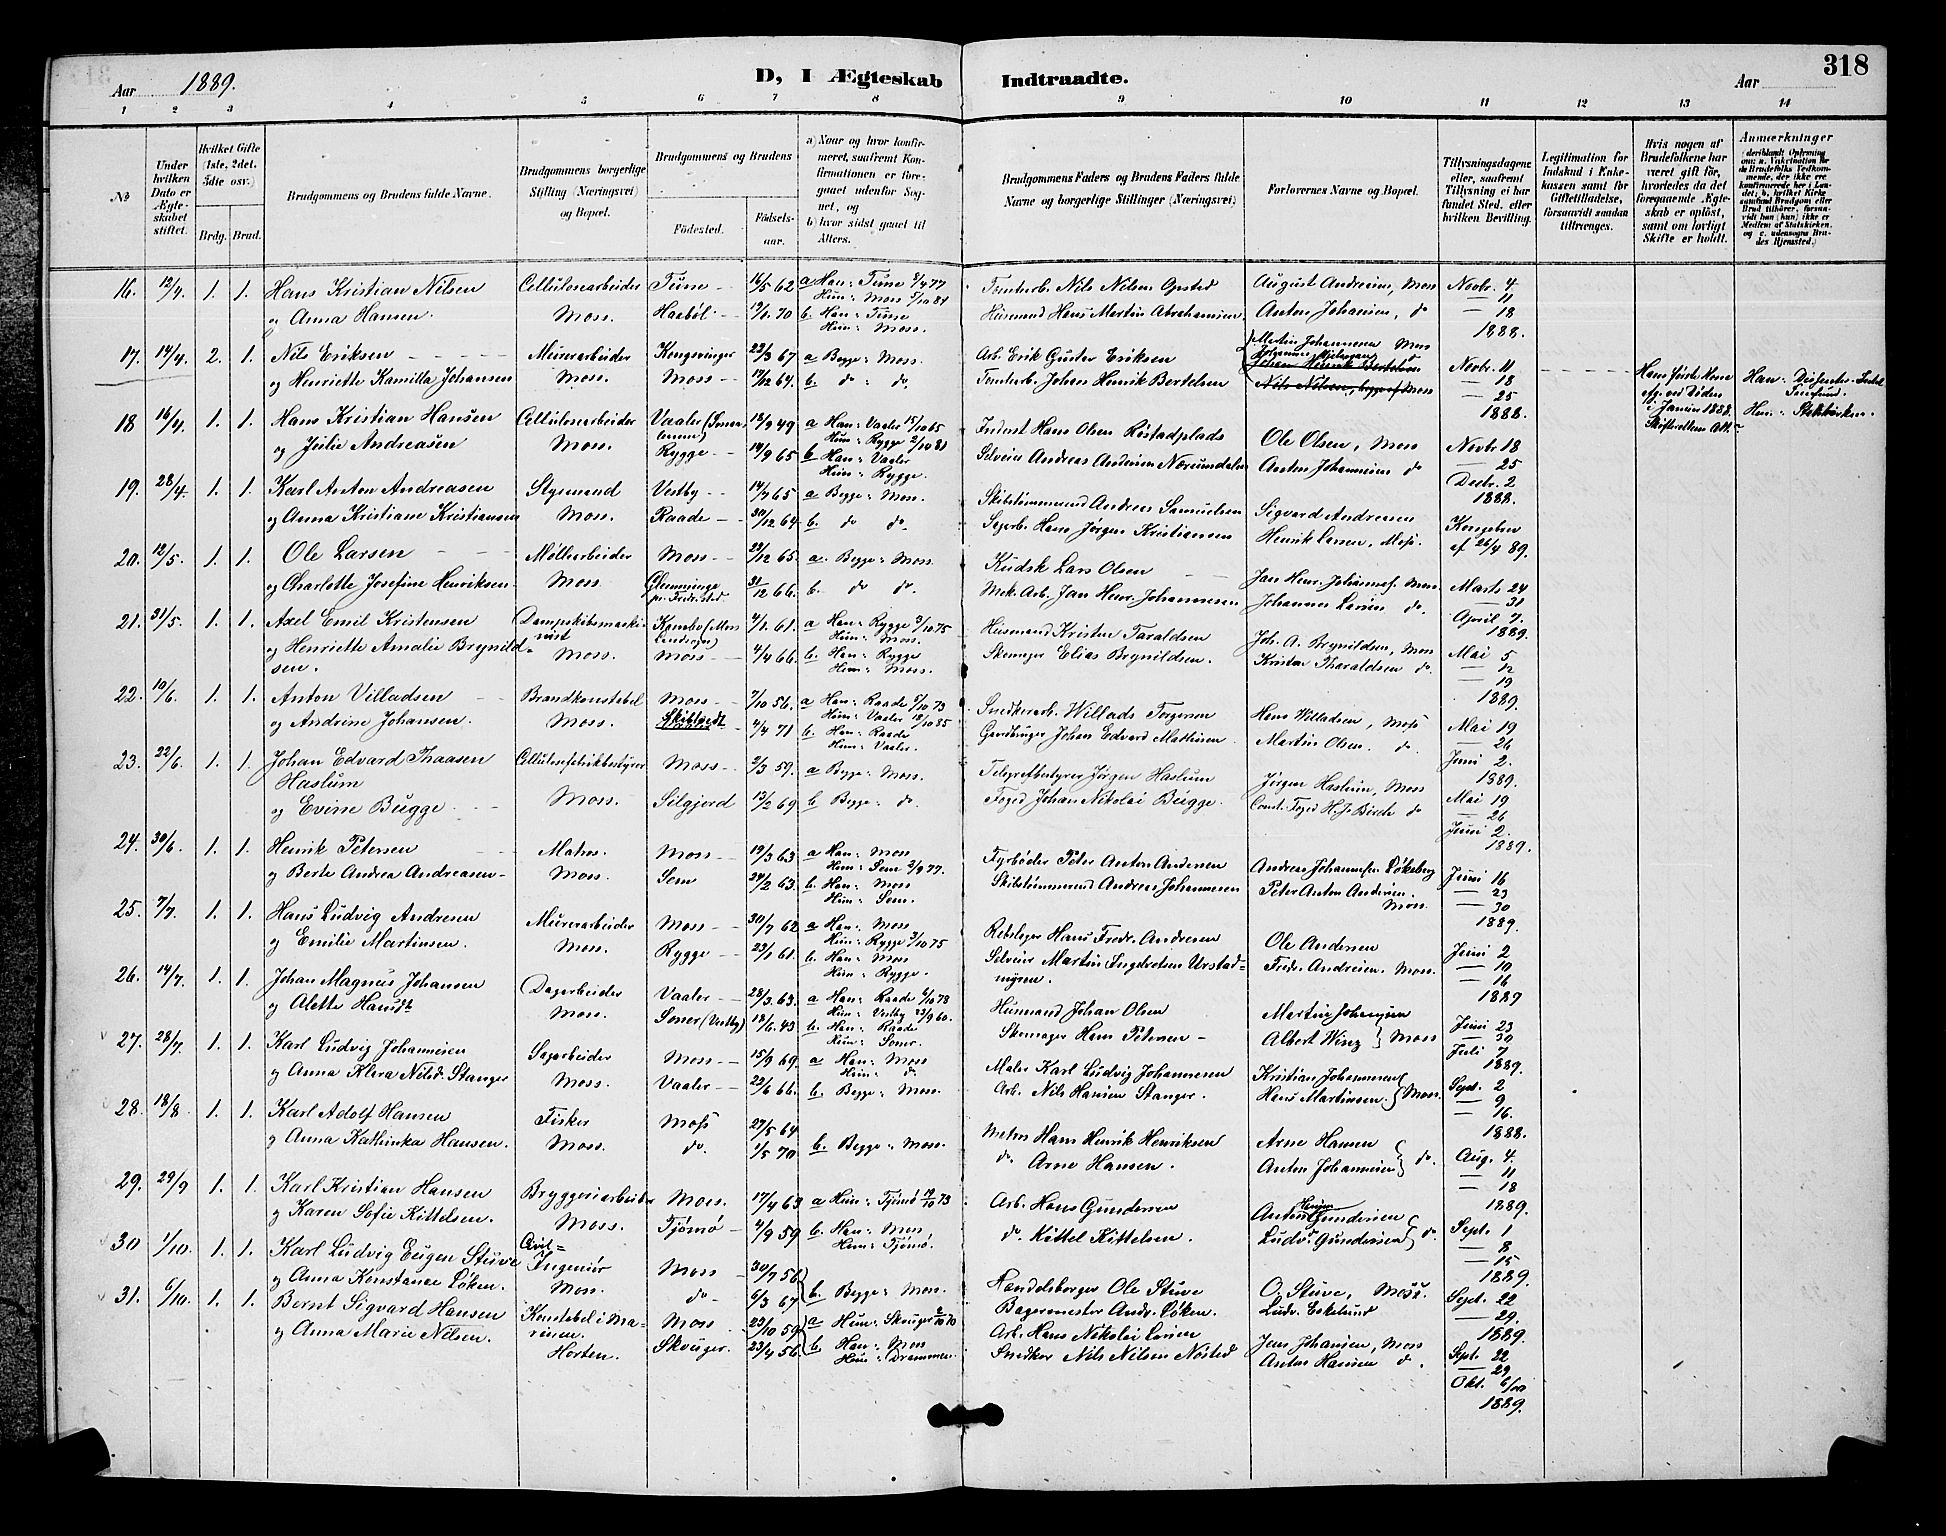 318
Aar 1889.
D, I Ægteskab Indtraadte.
Aar
1 2 3 4 5 6 7 8 9 10 11 12 13 14
№
Under hvilken Dato er Ægteskabet stiftet.
Hvilket Gifte (1ste, 2det, 3die osv.)
Brdg. Brud.
Brudgommens og Brudens fulde Navne.
Brudgommens borgerlige Stilling (Næringsvei) og Bopæl.
Brudgommens og Brudens
Fødested.
Fødselsaar.
a) Naar og hvor konfirmeret, saafremt Konfirmationen er foregaaet udenfor Sognet, og
b) hvor sidst gaaet til Alters.
Brudgommens Faders og Brudens Faders fulde Navne og borgerlige Stillinger (Næringsvei)
Forlovernes Navne og Bopæl.
Tillysningsdagene eller, saafremt Tillysning ei har fundet Sted, efter hvilken Bevilling.
Legitimation for Indskud i Enkekassen samt for Giftetilladelse, forsaavidt saadan tiltrænges.
Hvis nogen af Brudefolkene har været gift før, hvorledes da det foregaaende Ægteskab er opløst, samt om lovligt Skifte er holdt.
Anmerkninger
16. 12/4. 1. 1. Hans Kristian Nilsen Cellulosearbeider Tune 16/5 62 a Han: Tune 8/4 77 Tomterb. Nils Nilsen Opsted August Andresen, Moss Novbr. 4
Hun: Moss 5/10 84 — 11
og Anna Hansen. Moss. Haabøl 19/1. 70 b. Han: Tune Husmand Hans Martin Abrahamsen Anton Johansen, do — 18
Hun: Moss. 1888.
17. 14/4. 2. 1. Nils Eriksen Murerarbeider Kongsvinger 22/3 67 a Begge: Moss. Arb. Erik Gustav Eriksen Martin Johannesen Moss Novbr. 11
og Henriette Kamilla Johansen Moss. Moss 17/12 64. b. do do. Tomterb. Johan Henrik Bertelsen Johan Henrik Bertelsen — 18
Nils Nilsen, begge af Moss — 25
1888.
Hans første Kone afg. ved Døden i Januar 1888.
Han: Dissenter
Hun: Statskirken
18 16/4. 1. 1. Hans Kristian Hansen Cellulosearbeider Vaaler 18/9 49 a Han: Vaaler 15/10 65 Inderst Hans Olsen Rostadplads Ole Olsen, Moss Novbr 18
Hun: Rygge 2/10 81 — 25
og Julie Andreasen Moss. Rygge 14/9 65 b Han: Vaaler Selveier Andreas Andersen Anton Johannesen do Decbr. 2
Hun: Rygge. 1888.
19. 28/4. 1. 1. Karl Anton Andreasen Styrmand Vestby 14/7 65 a Begge: Moss. Skibstømmermand Andreas Samuelsen Sigvard Andreasen Kongebev
og Anna Kristiane Kristiansen Moss. Raade 30/12 64 b. do do. Sagarb. Hans Jørgen Kristiansen Henrik Larsen, Moss. af 26/4 89.
20. 12/5. 1. 1. Ole Larsen Møllearbeider Moss 22/12 65. a. Begge: Moss. Kudsk Lars Olsen Jan Henr. Johannes. Moss Marts 24
— 31
og Charlotte Josefine Henriksen Moss. Glemminge pr. Fredr.sted 31/12 66. b. do do. Mek. Arb. Jan Henr. Johannesen Johannes Larsen do. April 7.
1889.
21. 31/5. 1. 1. Axel Emil Kristensen Dampskibsmaskinist Kambo (Moss Landsogn) 4/1. 61. a Han: Rygge 3/10 75 Husmand Kristen Taraldsen Joh. A. Brynildsen, Moss Mai 5
Hun: Moss. — 12
og Henriette Amalie Brynildsen. Moss. Moss 4/4 66. b Han: Rygge Skomager Elias Brynildsen. Kristen Tharaldsen do — 19
Hun: Moss. 1889.
22. 10/6. 1. 1. Anton Villadsen Brandkonstabel Moss 7/10 56. a Han: Raade 5/10 73 Snedkerarb. Willads Torgersen Hans Willadsen, Moss Mai 19
Hun: Vaaler 18/10 85 — 26
og Andrine Johansen. Moss. Skibtvedt 4/4 71 b. Han: Raade Gaardbruger Johan Edvard Mathisen Martin Olsen. do. Juni 2.
Hun: Vaaler. 1889.
23. 22/6. 1. 1. Johan Edvard Thaasen Haslum Cellulosefabrikbestyrer Moss 2/3 59. a Begge: Moss. Telegrafbestyrer Jørgen Haslum Jørgen Haslum, Moss Mai 19
— 26
og Evine Bugge Moss. Silgjord 13/2 69 b Begge: do. Foged Johan Nikolai Bugge. Const. Foged H. J. Birch do Juni 2.
1889.
24. 30/6. 1. 1. Henrik Petersen Matros. Moss 19/3 63 a Han: Moss Fyrbøder Peter Anton Andersen Andreas Johannesen Løkeberg Juni 16
Hun: Sem 2/9 77. — 23
og Berte Andrea Andreasen Moss. Sem 24/2 63. b. Han: Moss Skibstømmermand Andreas Johannesen Peter Anton Andersen. Moss. — 30
Hun: Sem. 1889.
25. 7/7. 1. 1. Hans Ludvig Andresen Murerarbeider Moss 30/7 62 a Han: Moss Rebslager Hans Fredr. Andresen Ole Andersen Juni 2
Hun: Rygge 3/10 75 — 10
og Emilie Martinsen. Moss. Rygge 23/1 61. b. Han: Moss Selveier Martin Ingebretsen Urstadmyren. Fredr. Andresen. Moss. — 16
Hun: Rygge. 1889
26. 14/7. 1. 1. Johan Magnus Johansen Dagarbeider Vaaler 28/3. 63. a Han: Raade 6/10 78 Husmand Johan Olsen Martin Johansen Juni 23
Hun: Vestby 23/9 60. — 30
og Alette Hansdtr Moss. Soner (Vestby) 18/6. 43 b. Han: Raade Skomager Hans Petersen Albert Winz } Moss Juli 7
Hun: Soner. 1889.
27. 28/7. 1. 1. Karl Ludvig Johannesen Sagarbeider Moss 15/9 69. a Han: Moss Maler Karl Ludvig Johannesen Kristian Johannesen Sept. 2
Hun: do — 9
og Anna Klara Nilsd. Stanger Moss. Vaaler 22/6 66. b. Begge: Moss. Arb. Nils Hansen Stanger. Hans Martinsen. } Moss. — 16.
1888.
28. 18/8. 1. 1. Karl Adolf Hansen Fisker Moss 27/5 64 Matros Hans Henrik Henriksen Arne Hansen Aug. 4.
— 11
og Anna Kathinka Hansen. Moss. do. 1/5 70 b. Begge: Moss. do. Arne Hansen. Anton Johannesen } do. — 18
1889.
29. 29/9 1. 1. Karl Kristian Hansen Bryggeriarbeider Moss. 17/4 63 a Hun: Tjømø 19/10 73 Arb. Hans Gundersen Anton Gundersen Sept. 1
— 8
og Karen Sofie Kittelsen. Moss. Tjømø 4/9 59 b. Han: Moss do. Kittel Kittelsen. Ludv. Gundersen } do. — 15
Hun: Tjømø. 1889.
30 1/10. 1. 1. Karl Ludvig Eugen Stuve Civil-Ingeniør Moss 30/7 56 Handelsborger Ole Stuve O. Stuve, Moss. Sept. 22
og Anna Konstance Løken. Moss. do 6/3 67 b. Begge: Moss. Bagermester Andr. Løken. Ludv. Eskelund — 29.
1889.
31. 6/10. 1. 1. Bernt Sigvard Hansen Konstabel i Marinen. Moss 23/10 59 a Hun: Skouger 2/10 70 Arb. Hans Nikolai Larsen Jens Johansen, Moss Sept. 22
— 29
og Anna Marie Nilsen. Horten. Skouger. 23/4 56. b Han: Moss Snedker Nils Nilsen Nøsted Anton Hansen do. Okt. 6/
Hun: Drammen. 1889.